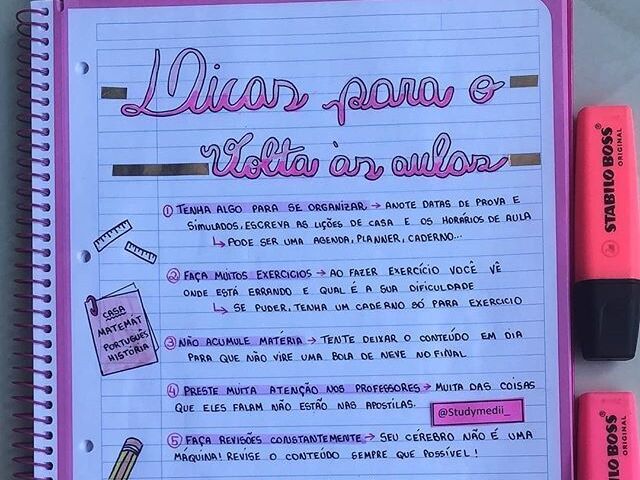 Dicas para o
Volta às aulas
① TENHA ALGO PARA SE ORGANIZAR → ANOTE DATAS DE PROVA E
SIMULADOS, ESCREVA AS LIÇÕES DE CASA E OS HORÁRIOS DE AULA
↳ PODE SER UMA AGENDA, PLANNER, CADERNO...
② FAÇA MUITOS EXERCICIOS → AO FAZER EXERCÍCIO VOCÊ VÊ
ONDE ESTÁ ERRANDO E QUAL É A SUA DIFICULDADE
↳ SE PUDER, TENHA UM CADERNO SÓ PARA EXERCICIO
CASA
MATEMAT
PORTUGUÊS
HISTÓRIA
③ NÃO ACUMULE MATÉRIA → TENTE DEIXAR O CONTEÚDO EM DIA
PARA QUE NÃO VIRE UMA BOLA DE NEVE NO FINAL
④ PRESTE MUITA ATENÇÃO NOS PROFESSORES → MUITA DAS COISAS
QUE ELES FALAM NÃO ESTÃO NAS APOSTILAS.
@Studymedii_
⑤ FAÇA REVISÕES CONSTANTEMENTE → SEU CÉREBRO NÃO É UMA
MÁQUINA! REVISE O CONTEÚDO SEMPRE QUE POSSÍVEL!
STABILO BOSS
ORIGINAL
ILO BOSS
ORIGINAL